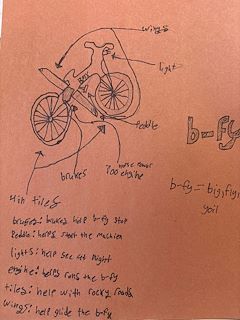 wings
light
b-fy
peddle
horse power
700 engine
brukes
b-fy = big, fly,
yoil
4in tiles
brukes: brukes help b-fy stop
Peddle: helps start the machien
lights: help see at night
engine: helps runs the b-fy
tiles: help with rocky roads
wings: help glide the b-fy